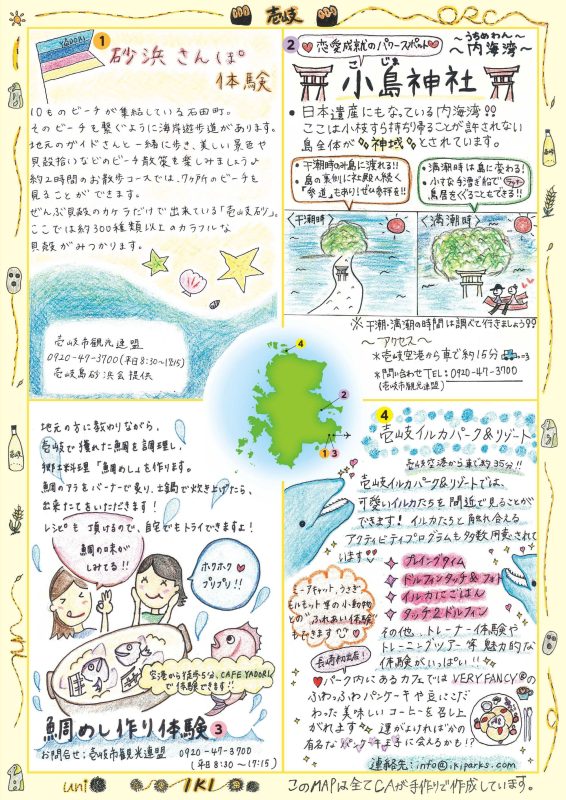 壱岐
ORC
1
YADORI
砂浜さんぽ
体験
10ものビーチが集結している石田町。
そのビーチを繋ぐように海岸遊歩道があります。
地元のガイドさんと一緒に歩き、美しい景色や
貝殻拾いなどのビーチ散策を楽しみましょう♪
約2時間のお散歩コースでは、7ヶ所のビーチを
見ることができます。
ぜんぶ貝殻のカケラだけで出来ている「壱岐砂」。
ここでは約300種類以上のカラフルな
貝殻がみつかります。
壱岐市観光連盟
0920-47-3700(平日8:30〜17:15)
壱岐島砂浜会提供
2
♥恋愛成就のパワースポット♥
〜うちめわん〜
〜内海湾〜
こじま
小島神社
• 日本遺産にもなっている内海湾!!
ここは小枝すら持ち帰ることが許されない
島全体が 神域 とされています。
• 干潮時のみ島に渡れる!!
• 島の裏側に社殿へ続く
「参道」もあり!ぜひ参拝を!!
• 満潮時は島に変わる!
• 小さな手漕ぎ船で
鳥居をくぐることもできる!!
〈干潮時〉
〈満潮時〉
※干潮・満潮の時間は調べて行きましょう!!
〜アクセス〜
*壱岐空港から車で約15分
*お問い合わせTEL:0920-47-3700
(壱岐市観光連盟)
4
2
1 3
地元の方に教わりながら、
壱岐で獲れた鯛を調理し、
郷土料理「鯛めし」を作ります。
鯛のアラをバーナーで炙り、土鍋で炊き上げたら、
出来たてをいただきます!
レシピも頂けるので、自宅でもトライできますよ!
鯛の味が
しみてる!!
ホクホク
プリプリ!!
空港から徒歩5分、CAFE YADORI
で体験できます!!
鯛めし作り体験 3
お問合せ:壱岐市観光連盟 0920-47-3700
(平日8:30〜17:15)
4
壱岐イルカパーク&リゾート
壱岐空港から車で約35分!!
壱岐イルカパーク&リゾートでは、
可愛いイルカたちを間近で見ることが
できます!イルカたちと触れ合える
アクティビティプログラムも多数用意されて
います♡
プレイングタイム
ドルフィンタッチ&フォト
イルカにごはん
タッチ2ドルフィン
ミーアキャット、うさぎ
モルモット等の小動物
との"ふれあい体験"
もできます♡
その他、トレーナー体験や
トレーニングツアー等 魅力的な
体験がいっぱい!!
長崎初出店!
♥パーク内にあるカフェではVERY FANCY®の
ふわっふわパンケーキや豆にこだ
わった美味しいコーヒーを召し上
がれます 運がよければかの
有名なパンケーキ王子に会えるかも!?
連絡先:info@ikiparks.com
uni IKI
このMAPは全てCAが手作りで作成しています。